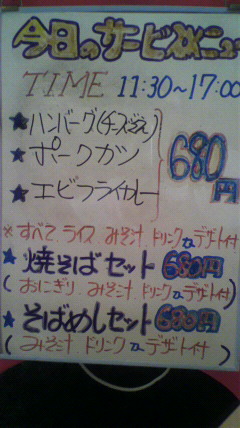 今日のサービスメニュー
TIME 11:30〜17:00
★ハンバーグ(チーズ添え)
★ポークカツ
★エビフライカレー
680円
※すべて ライス、みそ汁、ドリンク or デザート付
★焼そばセット 680円
(おにぎり、みそ汁、ドリンク or デザート付)
★そばめしセット 680円
(みそ汁 ドリンク or デザート付)